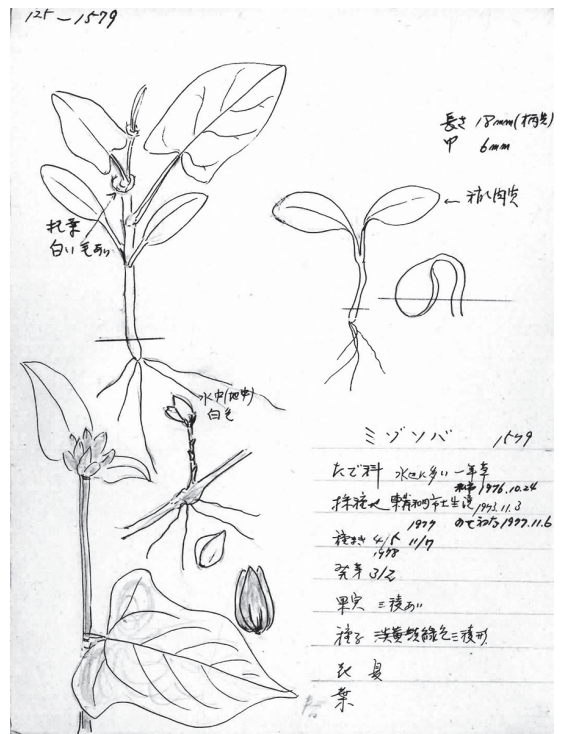 125-1579
長さ 18mm(柄共)
巾 6mm
← 稍々肉质
托葉
白い毛あり
水中(地中)
白色
ミゾソバ 1579
たで科 水辺に多い 一年草
1976.10.24
採種地 1973.11.3
1977 1977.11.6
種まき 4/5 11/7
1978
発芽 3/2
果実 三稜あり
種子 淡黄緑色三稜形
花 夏
葉